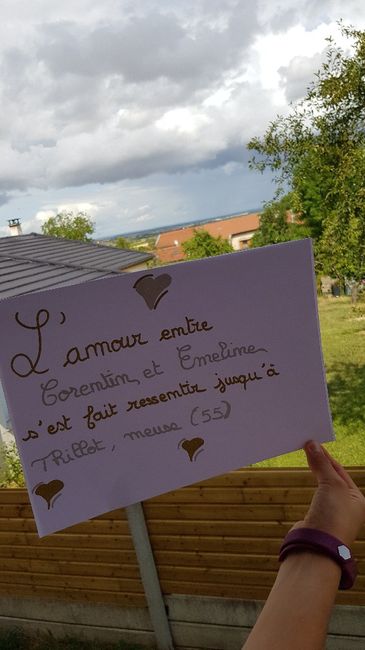 L'amour entre
Corentin et Emeline
s'est fait ressentir jusqu'à
Thillot, meuse (55)